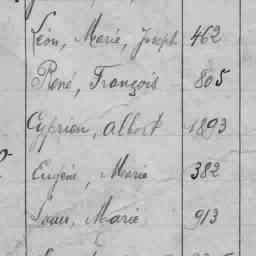 Léon, Marie, Joseph 462
René, François 805
Cyprien, Albert 1893
Eugène, Marie 382
Marie 913